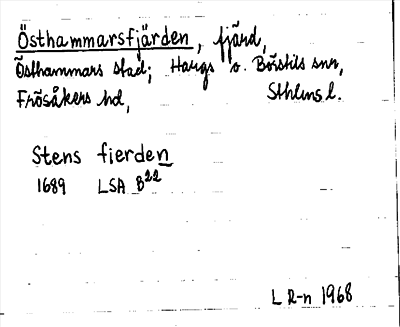 Östhammarsfjärden, fjärd,
Östhammars stad; Hargs o. Börstils snr,
Frösåkers hd, Sthlms l.
Stens fierden
1689 LSA B22
L R-n 1968